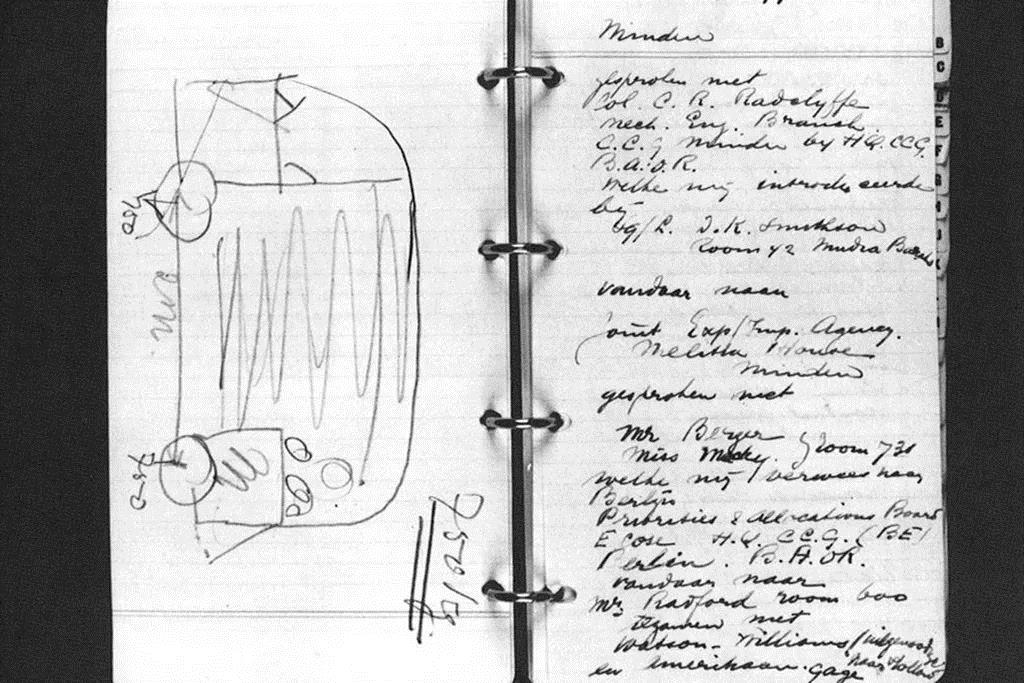 2m.
750 kg
Minden
gesproken met
Col. C. R. Radclyffe
Mech. Eng. Branch
C.C.G Minden by H.Q. CCG.
B.A.O.R.
welke mij introduceerde
bij
D.K. Smithson
Room 42 Mudra Baracks
vandaar naar
Joint Exp/Imp. Agency.
Melitta House
Minden
gesproken met
Mr Berger
Miss room 731
welke mij verwees naar
Berlijn
Priorities & Allocations Board
H.Q. C.C.G. (BE)
Berlin. B.A.O.R.
vandaar naar
Mr. Radford room 600
tezamen met
Watson-Williams
en Amerikaan. Gage
B
C
D
E
F
G
H